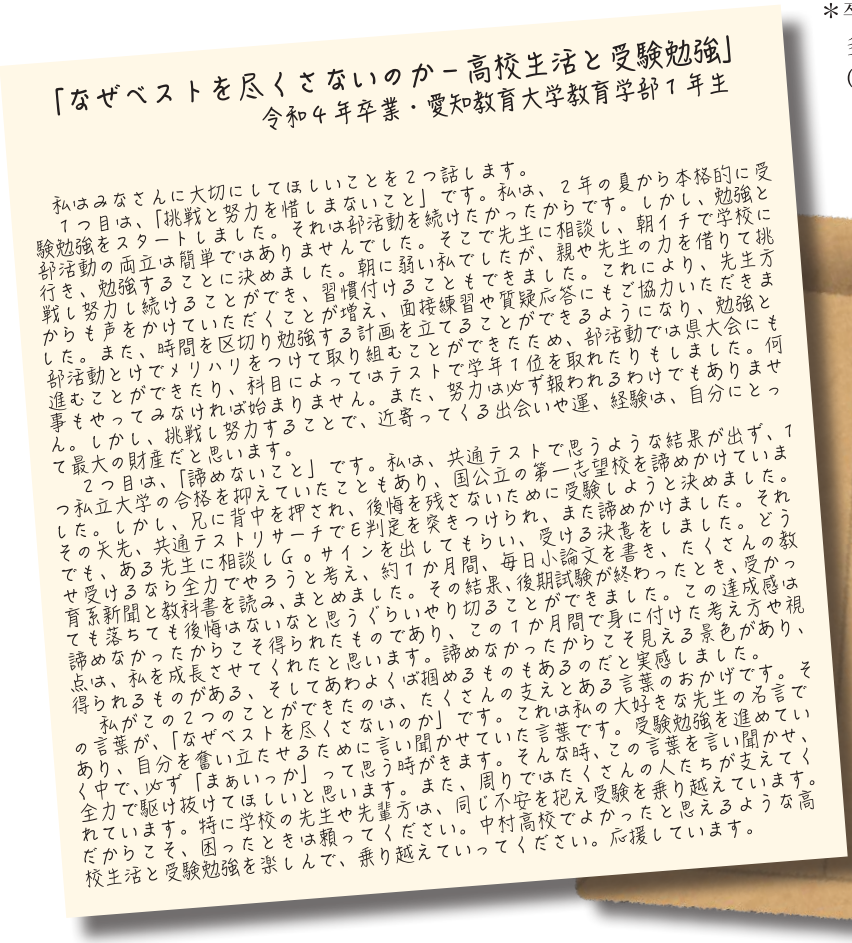 「なぜベストを尽くさないのか－高校生活と受験勉強」
令和4年卒業・愛知教育大学教育学部1年生
私はみなさんに大切にしてほしいことを2つ話します。
1つ目は、「挑戦と努力を惜しまないこと」です。私は、2年の夏から本格的に受
験勉強をスタートしました。それは部活動を続けたかったからです。しかし、勉強と
部活動の両立は簡単ではありませんでした。そこで先生に相談し、朝イチで学校に
行き、勉強することに決めました。朝に弱い私でしたが、親や先生の力を借りて挑
戦し努力し続けることができ、習慣付けることもできました。これにより、先生方
からも声をかけていただくことが増え、面接練習や質疑応答にもご協力いただきま
した。また、時間を区切り勉強する計画を立てることができるようになり、勉強と
部活動とけでメリハリをつけて取り組むことができたため、部活動では県大会にも
進むことができたり、科目によってはテストで学年1位を取れたりもしました。何
事もやってみなければ始まりません。また、努力は必ず報われるわけでもありませ
ん。しかし、挑戦し努力することで、近寄ってくる出会いや運、経験は、自分にとっ
て最大の財産だと思います。
2つ目は、「諦めないこと」です。私は、共通テストで思うような結果が出ず、1
つ私立大学の合格を抑えていたこともあり、国公立の第一志望校を諦めかけていま
した。しかし、兄に背中を押され、後悔を残さないために受験しようと決めました。
その矢先、共通テストリサーチでE判定を突きつけられ、また諦めかけました。それ
でも、ある先生に相談しG。サインを出してもらい、受ける決意をしました。どう
せ受けるなら全力でやろうと考え、約1か月間、毎日小論文を書き、たくさんの教
育系新聞と教科書を読み、まとめました。その結果、後期試験が終わったとき、受かっ
ても落ちても後悔はないなと思うぐらいやり切ることができました。この達成感は
諦めなかったからこそ得られたものであり、この1か月間で身に付けた考え方や視
点は、私を成長させてくれたと思います。諦めなかったからこそ見える景色があり、
得られるものがある、そしてあわよくば掴めるものもあるのだと実感しました。
私がこの2つのことができたのは、たくさんの支えとある言葉のおかげです。そ
の言葉が、「なぜベストを尽くさないのか」です。これは私の大好きな先生の名言で
あり、自分を奮い立たせるために言い聞かせていた言葉です。受験勉強を進めてい
く中で、必ず「まあいっか」って思う時がきます。そんな時、この言葉を言い聞かせ、
全力で駆け抜けてほしいと思います。また、周りではたくさんの人たちが支えてく
れています。特に学校の先生や先輩方は、同じ不安を抱え受験を乗り越えています。
だからこそ、困ったときは頼ってください。中村高校でよかったと思えるような高
校生活と受験勉強を楽しんで、乗り越えていってください。応援しています。